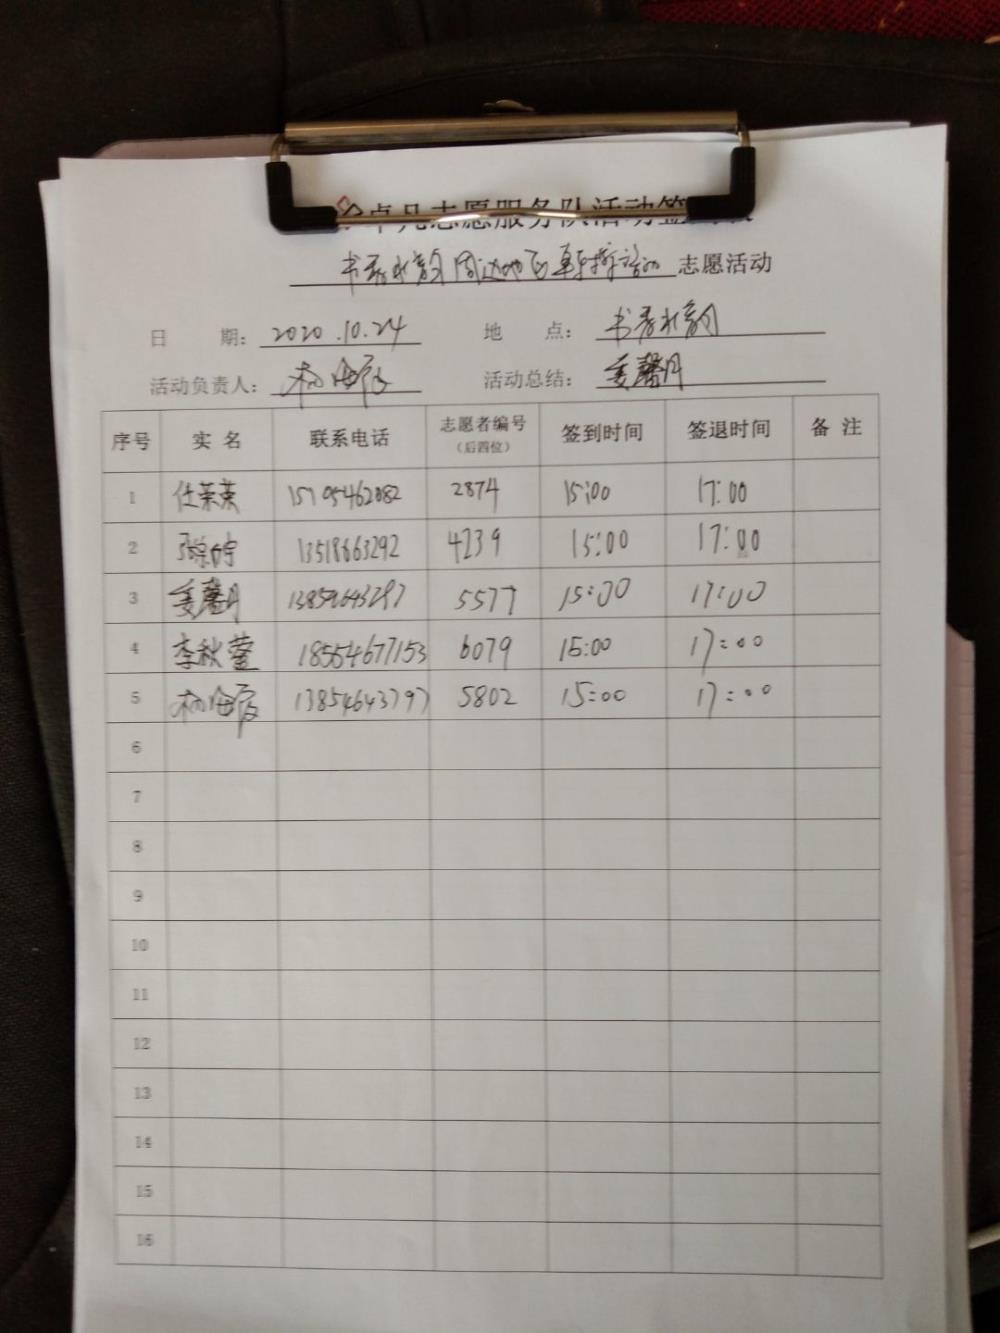 卓凡志愿服务队活动签
书香水韵周边地 志愿活动
日 期: 2020.10.24 地 点: 书香水韵
活动负责人: 活动总结: 姜馨月
序号 实 名 联系电话 志愿者编号 (后四位) 签到时间 签退时间 备 注
1 任荣英 15705462082 2874 15:00 17:00
2 13518663292 4239 15:00 17:00
3 姜馨月 5577 15:00 17:00
4 李秋莹 18554677153 6079 15:00 17:00
5 13854643797 5802 15:00 17:00
6
7
8
9
10
11
12
13
14
15
16